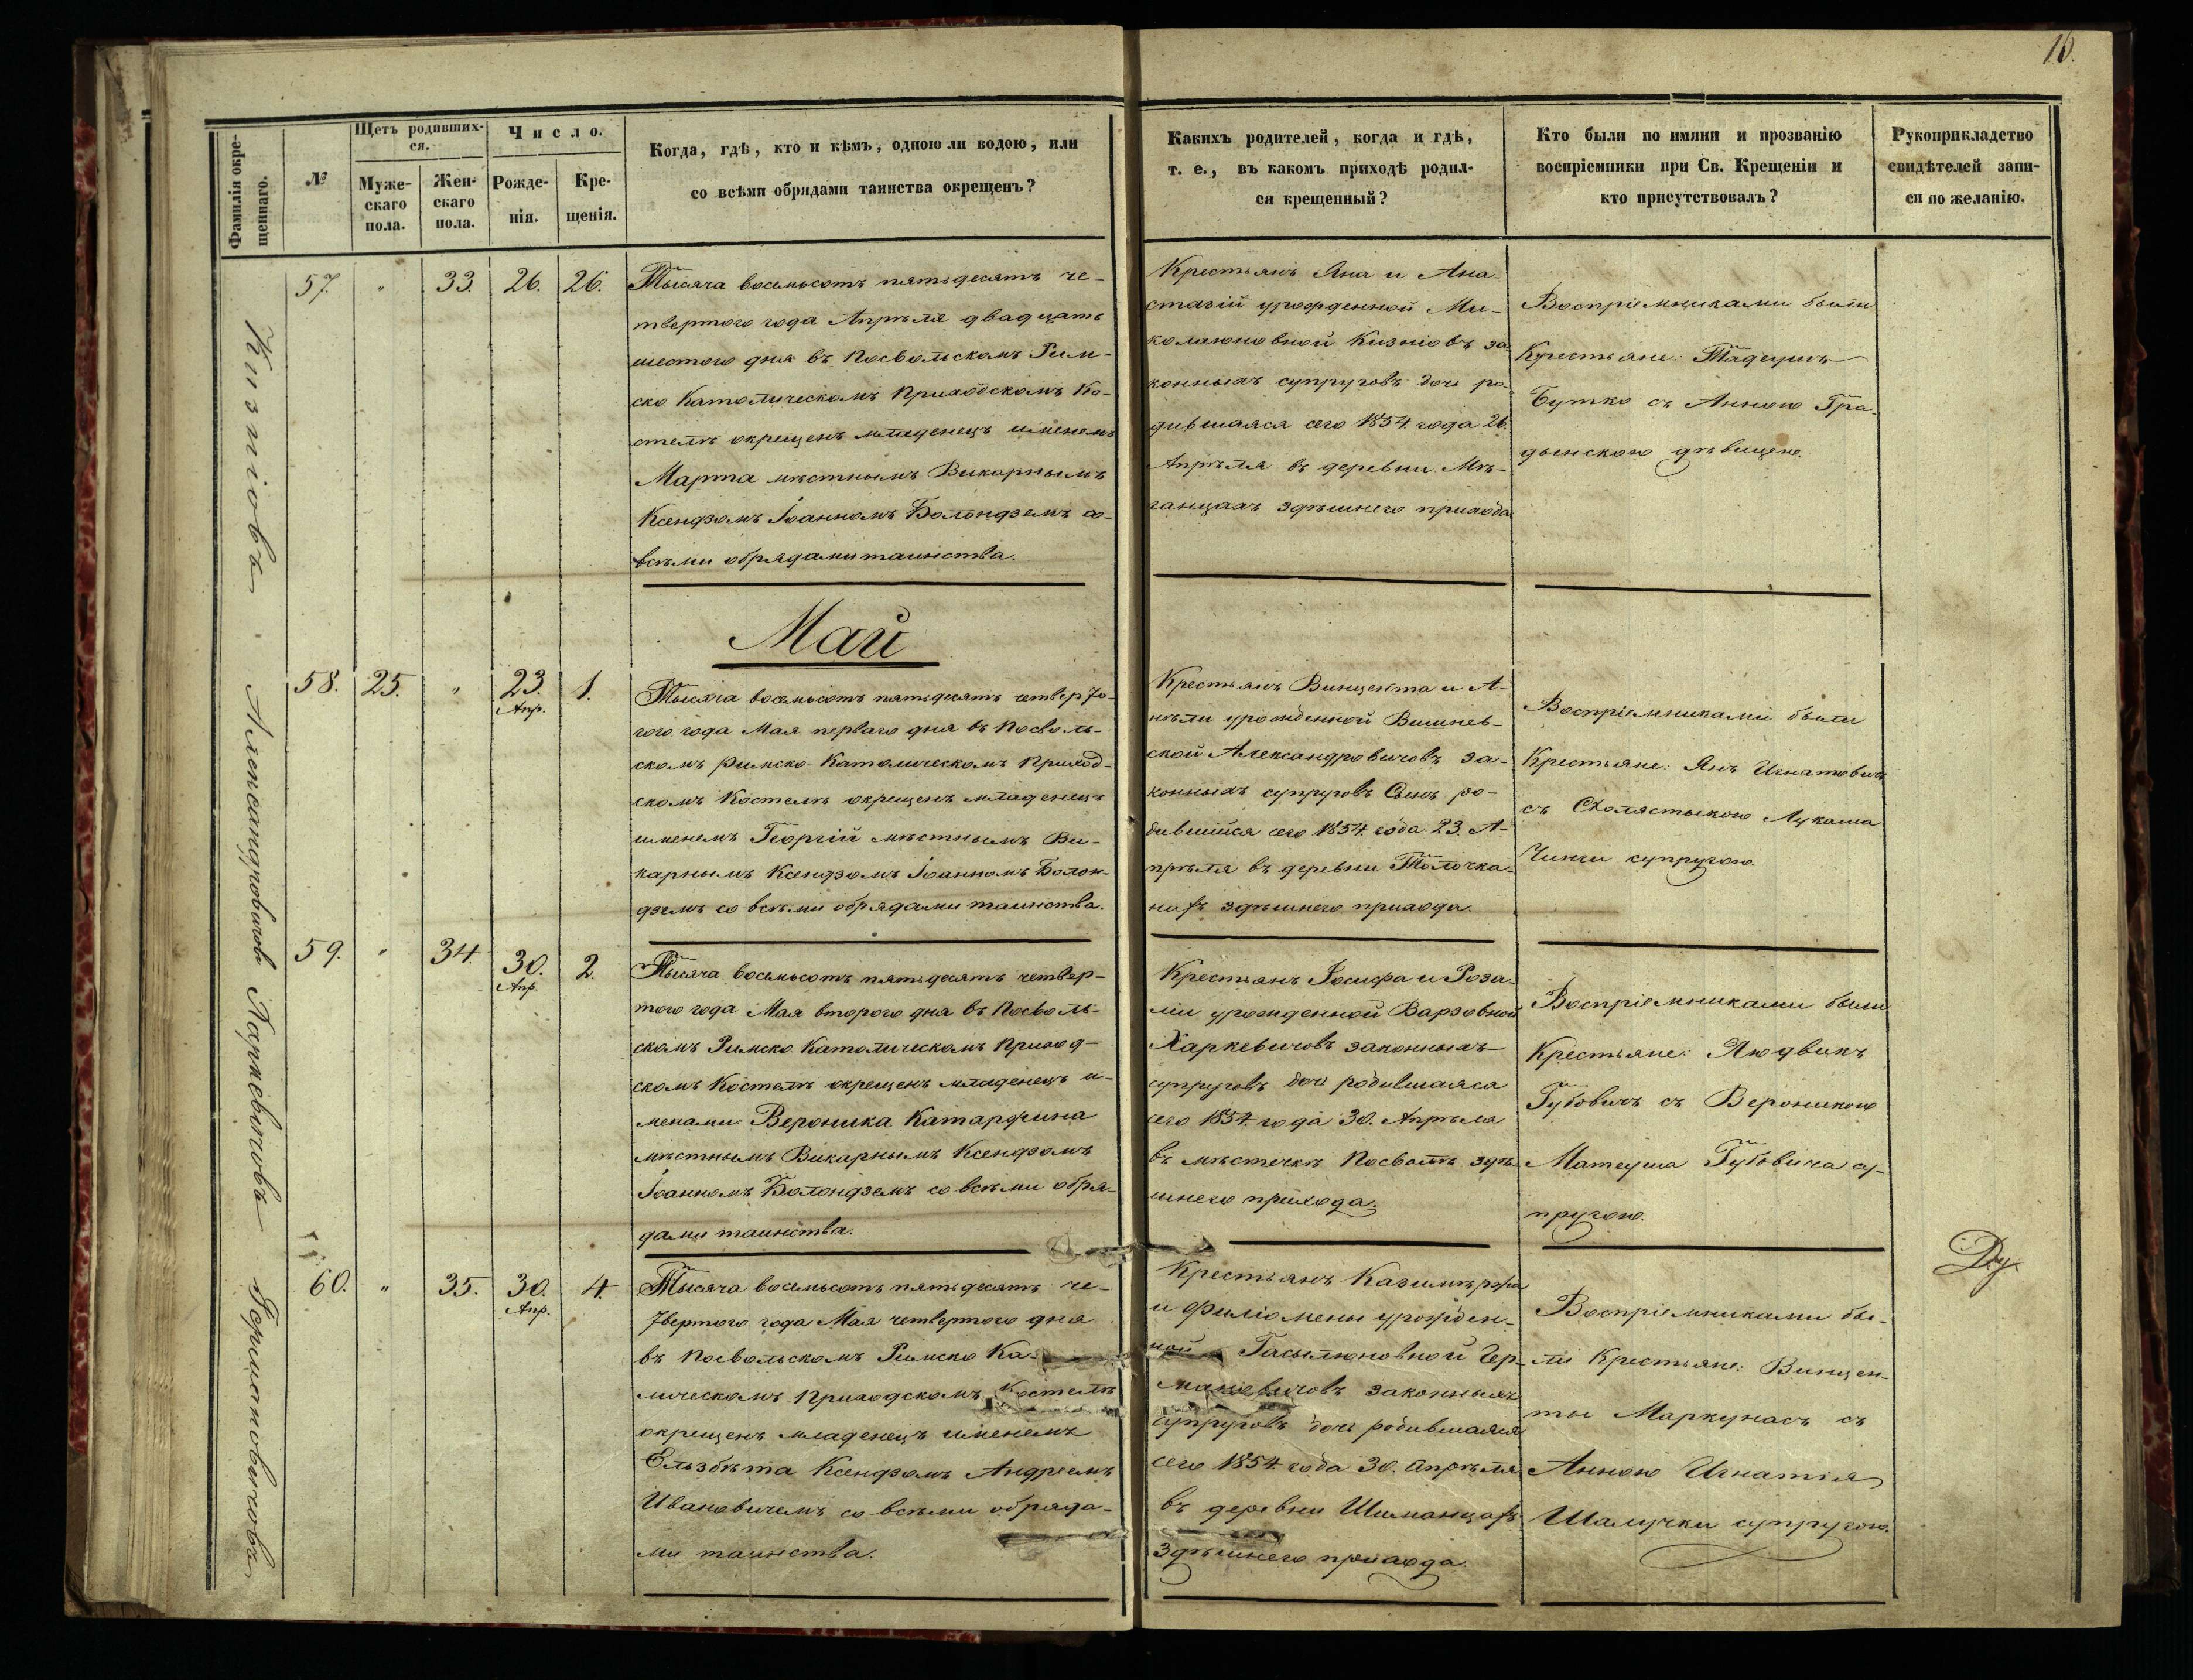 10.
Фамилія окре-
щеннаго.
№
Щетъ родивших-
ся.
Муже-
скаго
пола.
Жен-
скаго
пола.
Число.
Рожде-
нія.
Кре-
щенія.
Когда, гдѣ, кто и кѣмъ, одною ли водою, или
со всѣми обрядами таинства окрещенъ?
Какихъ родителей, когда и гдѣ,
т. е., въ какомъ приходѣ родил-
ся крещенный?
Кто были по имяни и прозванію
воспріемники при Св. Крещеніи и
кто присутствовалъ?
Рукоприкладство
свидѣтелей запи-
си по желанію.
Кизніовъ
57. " 33. 26. 26.
Тысяча восемьсотъ пятьдесятъ че-
твертого года Апрѣля двадцать
шестого дня въ Посвольскомъ Рим-
ско Католическомъ Приходскомъ Ко-
стелѣ окрещенъ младенецъ именемъ
Марта мѣстнымъ Викарнымъ
Ксендзомъ Іоанномъ Болондземъ со-
всѣми обрядами таинства.
Крестьянъ Яна и Ана-
стазій урожденной Ми-
колаюновной Кизніовъ за-
конныхъ супруговъ дочь ро-
дившаяся сего 1854 года 26.
Апрѣля въ деревни Мѣ-
ганцахъ здѣшнего прихода
Воспріемниками были
Крестьяне: Тадеушъ
Бутко съ Анною Гра-
дынскою дѣвицею.
Май
Александровичовъ
58. 25. " 23. Апр. 1.
Тысяча восемьсотъ пятьдесятъ четверто-
гого года Мая перваго дня въ Посволь-
скомъ Римско-Католическомъ Приход-
скомъ Костелѣ окрещенъ младенецъ
именемъ Георгій мѣстнымъ Ви-
карнымъ Ксендзомъ Іоанномъ Болон-
дземъ со всѣми обрядами таинства.
Крестьянъ Винцента и А-
нѣли урожденной Вишнев-
ской Александровичовъ за-
конныхъ супруговъ Сынъ ро-
дившійся сего 1854. года 23. А-
прѣля въ деревни Толочка-
нахъ здѣшнего прихода.
Воспріемниками были
Крестьяне: Янъ Игнатовичъ
съ Схолястыкою Лукаша
Чинги супругою.
Харкевичовъ
59. " 34. 30. Апр. 2.
Тысяча восемьсотъ пятьдесятъ четвер-
того года Мая второго дня въ Посволь-
скомъ Римско Католическомъ Приход-
скомъ Костелѣ окрещенъ младенецъ и-
менами Вероника Катаржина
мѣстнымъ Викарнымъ Ксендзомъ
Іоанномъ Болондземъ со всѣми обря-
дами таинства.
Крестьянъ Іосифа и Роза-
ліи урожденной Варзовной
Харкевичовъ законныхъ
супруговъ дочь родившаяся
сего 1854. года 30. Апрѣля
въ мѣстечкѣ Посволѣ здѣ-
шнего прихода.
Воспріемниками были
Крестьяне: Людвикъ
Губовичъ съ Вероникою
Матеуша Губовича су-
пругою.
Германовичовъ
60. " 35. 30. Апр. 4.
Тысяча восемьсотъ пятьдесятъ че-
твертого года Мая четвертого дня
въ Посвольскомъ Римско Ка-
лическомъ Приходскомъ Костелѣ
окрещенъ младенецъ именемъ
Ельзбѣта Ксендзомъ Андреемъ
Ивановичемъ со всѣми обряда-
ми таинства.
Крестьянъ Казимѣржа
и Филіомены урожден-
ной Гасылюновной Гер-
мановичовъ законныхъ
супруговъ дочь родившаяся
сего 1854. года 30. Апрѣля
въ деревни Шиманцахъ
здѣшнего прихода.
Воспріемниками бы-
ли Крестьяне: Винцен-
ты Маркунасъ съ
Анною Игнатія
Шалучки супругою.